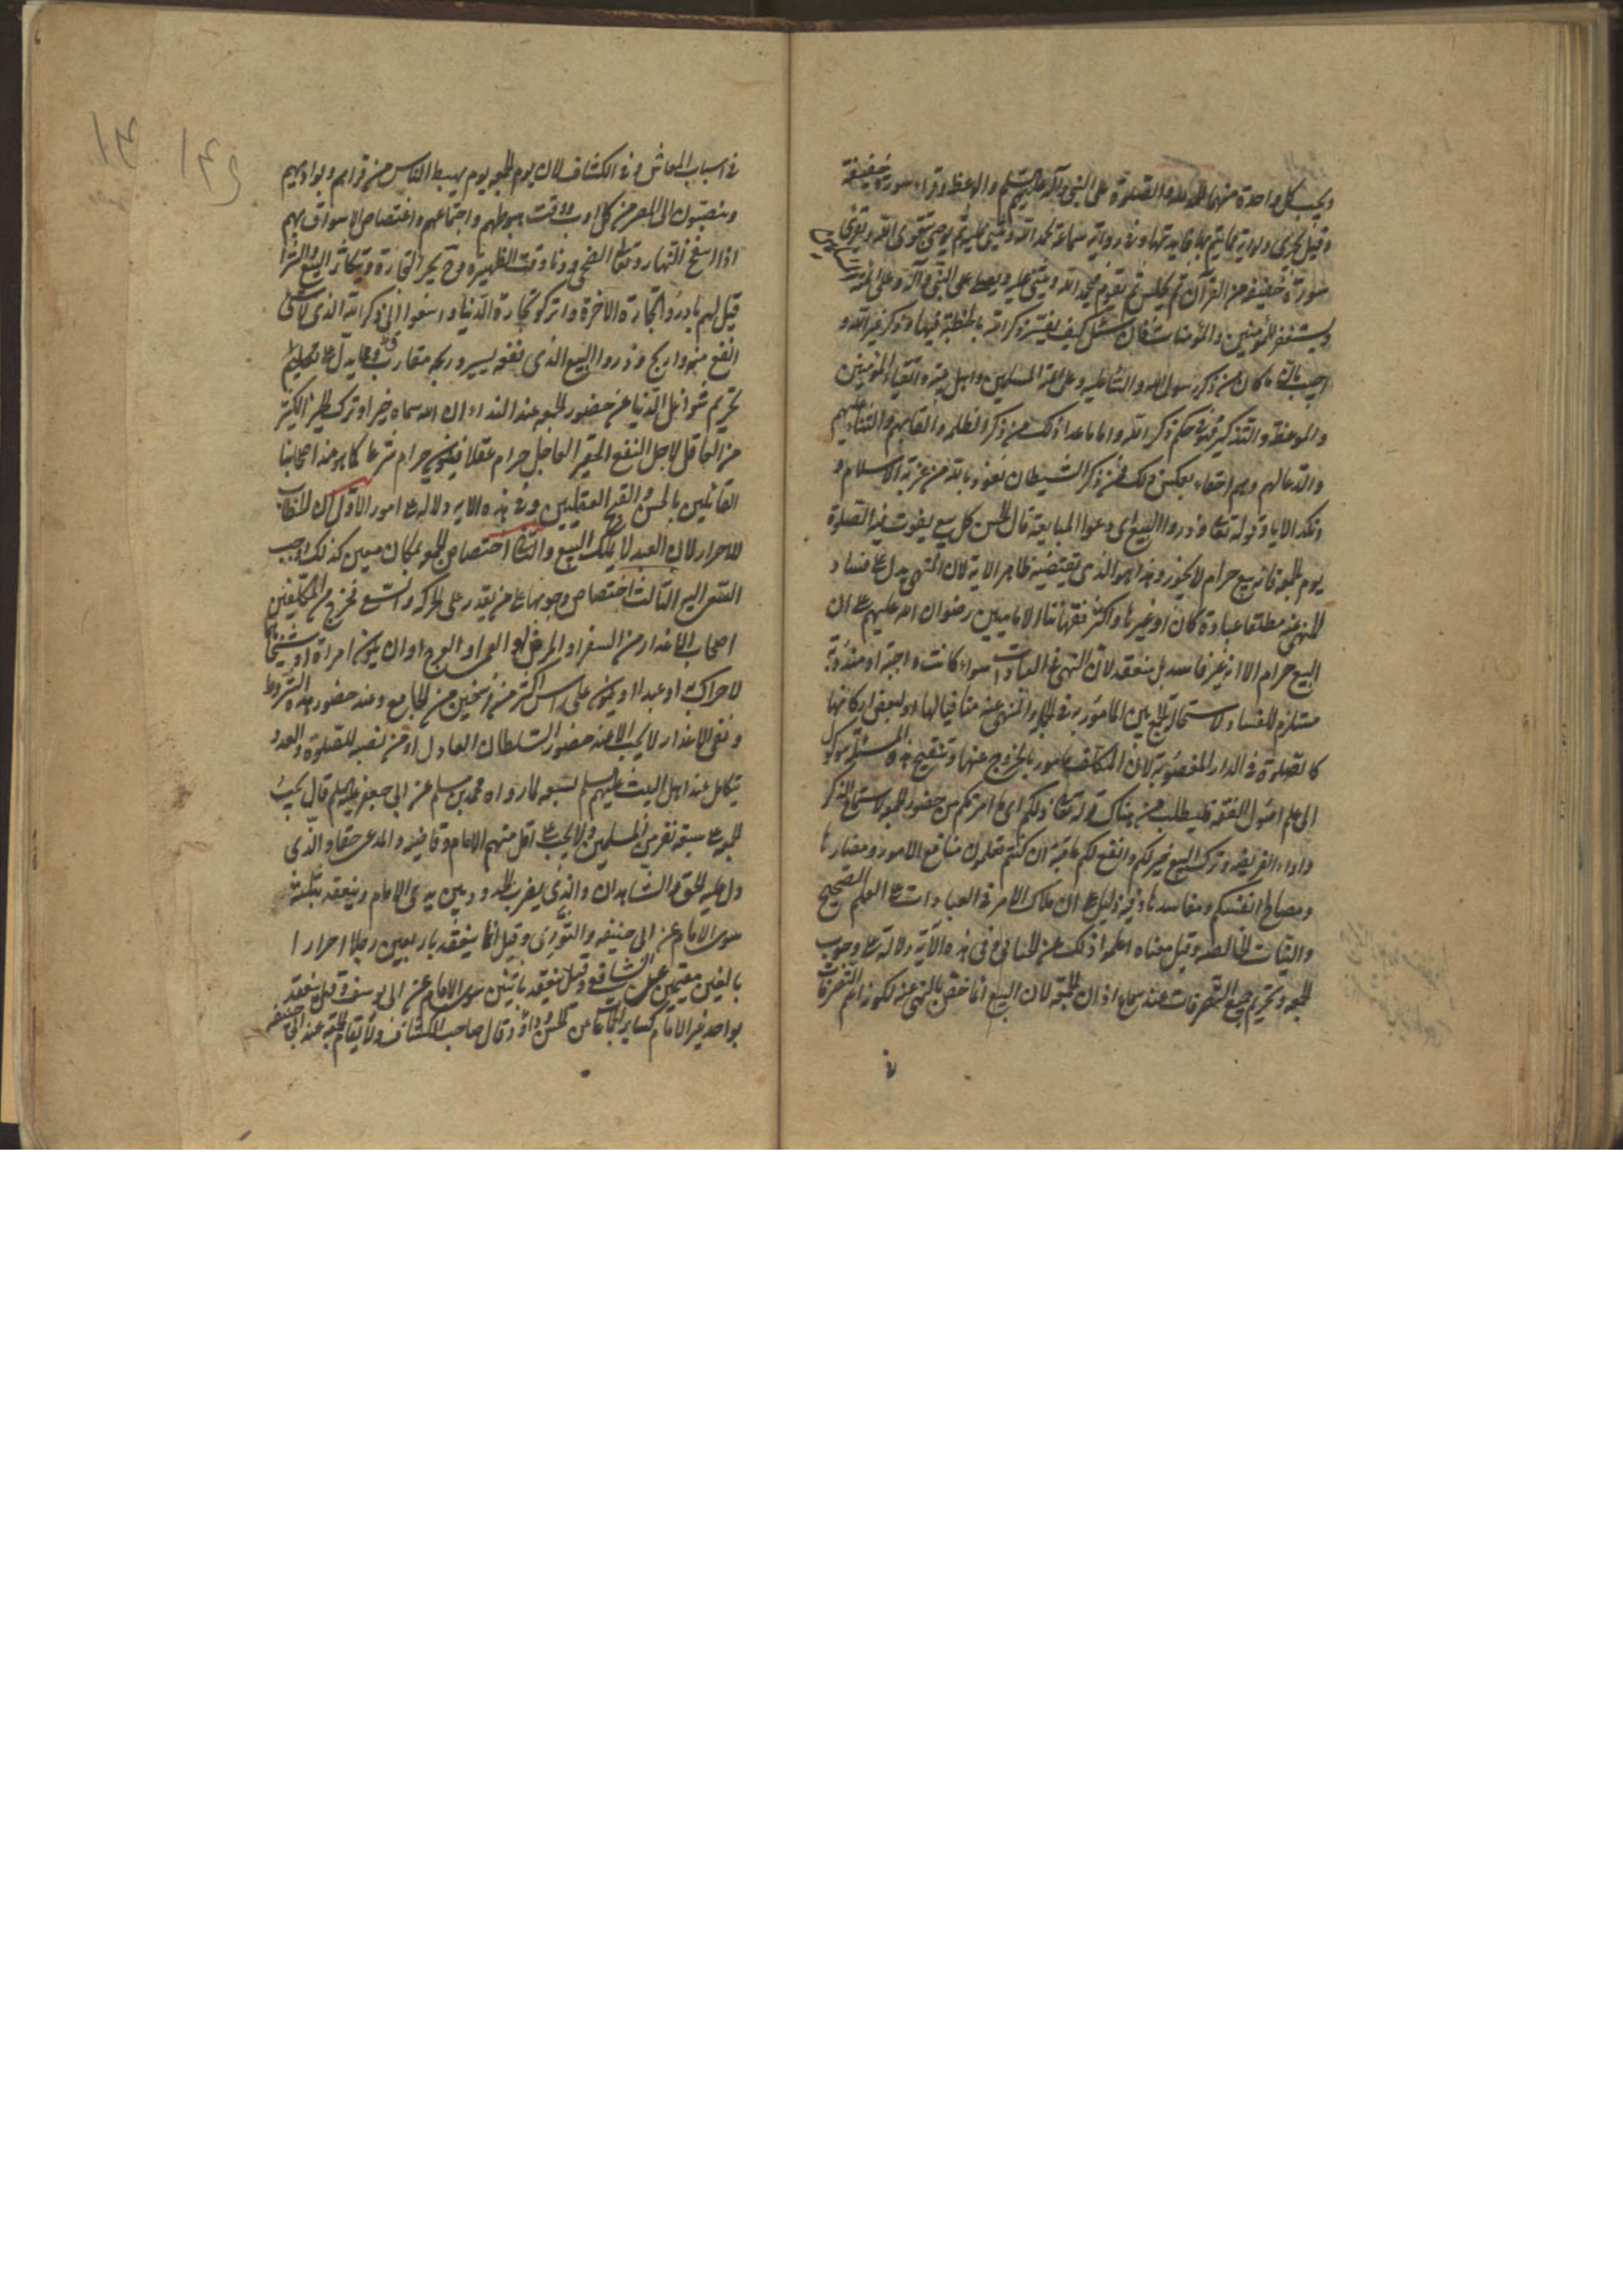 ويجب كل واحدة منهما الحمد لله والصلوة على النبي وآله عليهم السلم والوعظ وقراءة سورة خفيفة
وقيل يجزى ولو آية مما يتم بها فايدتها وفي رواية سماعة يحمد الله ويثنى عليه ثم يوصى بتقوى الله ويقرئ
سورة خفيفة من القرآن ثم يجلس ثم يقوم فيحمد الله ويثنى عليه ويصلى على النبي وآله وعلى ائمة المسلمين
ويستغفر للمؤمنين والمؤمنات فان سئل كيف يفسر ذكر الله بالخطبة وفيها ذكر غير الله
اجيب بان ما كان من ذكر رسول الله والثناء عليه وعلى ائمة المسلمين واهل بيته واتقياء المؤمنين
والموعظة والتذكير فهو في حكم ذكر الله واما ما عدا ذلك من ذكر الظلمة والقابهم والثناء عليهم
والدعا لهم وهم احقاء بعكس ذلك فمن ذكر الشيطان نعوذ بالله من غربة الاسلام و
نكد الايام وقوله تعا وذروا البيع اى دعوا المبايعة قال الحسن كل بيع يفوت فيه الصلوة
يوم الجمعة فانه بيع حرام لا يجوز وهذا هو الذى يقتضيه ظاهر الاية لان النهى يدل على فساد
المنهى عنه مطلقا عبادة كان او غيرها واكثر فقهائنا الاماميين رضوان الله عليهم على ان
البيع حرام الا انه غير فاسد بل منعقد لان النهى في العبادات سواء كانت واجبة او مندوبة
مستلزم للفساد لاستحالة الجمع بين المامور به في الجملة والمنهى عنه منافيا لها او لبعض اركانها
كالصلوة في الدار المغصوبة لان المكلف مامور بالخروج عنها وتنقيح هذه المسئلة موكول
الى علم اصول الفقه فليطلب من هناك قوله تعا ذلكم اى ما امرتكم من حضور الجمعة لاستماع الذكر
واداء الفريضة وترك البيع خير لكم وانفع لكم عاقبة ان كنتم تعلمون منافع الامور ومضارها
ومصالح انفسكم ومفاسدها وفيه دليل على ان ملاك الامر في العبادات على العلم الصحيح
والنيات الخالصة وقيل معناه اعلموا ذلك عن الجبائى وفى هذه الآية دلالة على وجوب
الجمعة وتحريم جميع التصرفات عند سماع اذان الجمعة لان البيع انما خص بالنهى عنه لكونه اعم التصرفات
في اسباب المعاش وفي الكشاف لان يوم الجمعة يوم يهبط الناس من قراهم وبواديهم
وينصبون الى المصر من كل اوب ووقت هبوطهم واجتماعهم واغتصاص الاسواق بهم
اذا انتفخ النهار وتعالى الضحى ودنا وقت الظهيرة وح يحر التجارة ويتكاثر البيع والشراء
قيل لهم بادروا تجارة الاخرة واتركوا تجارة الدنيا واسعوا الى ذكر الله الذى لا شئ
انفع منه واربح وذروا البيع الذى نفعه يسير وربحه متقارب ومما يدل على تعظيم
تحريم شواغل الدنيا عن حضور الجمعة عند النداء ان الله سماه خيرا وترك الخير الكثير
من العاقل لاجل النفع الحقير العاجل حرام عقلا فيكون حرام شرعا كما هو عند اصحابنا
القائلين بالحسن والقبح العقليين وفي هذه الاية دلالة على امور الاول ان الخطاب
للاحرار لان العبد لا يملك البيع والثانى اختصاص الجمعة بمكان معين كذلك اوجب
السعى اليه الثالث اختصاص وجوبها على من يقدر على الحركة والسعى فخرج من المكلفين
اصحاب الاعذار من السفر او المرض او العمى او العرج او ان يكون امراة او شيخا
لا حراك به او عبدا او يكون على راس اكثر من فرسخين من الجامع وعند حضور هذه الشروط
ونفى الاعذار لا يجب الا عند حضور السلطان العادل او من نصبه للصلوة والعدد
يتكامل عند اهل البيت عليهم السلم بسبعة لما رواه محمد بن مسلم عن ابى جعفر عليه السلم قال يجب
الجمعة على سبعة نفر من المسلمين ولا يجب على اقل منهم الامام وقاضيه والمدعى حقا والذى
ادعى عليه الحق والشاهدان والذى يضرب الحدود بين يدى الامام وينعقد بثلثة
سوى الامام عن ابى حنيفه والثورى وقيل انما ينعقد باربعين رجلا احرارا
بالغين مقيمين عن الشافعى وقيل ينعقد باثنين سوى الامام عن ابى يوسف وقيل ينعقد
بواحد غير الامام كساير الجماعات عن الحسن وداود وقال صاحب الكشاف ولا تقام الجمعة عند ابى حنيفه